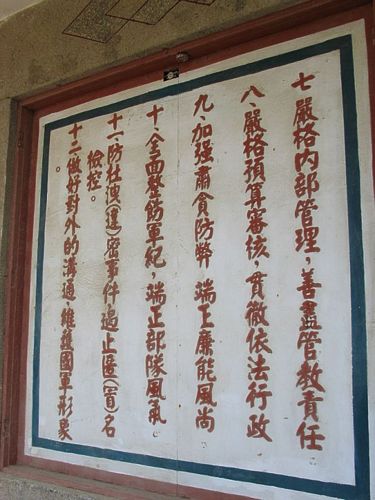 七、嚴格內部管理，善盡管教責任
八、嚴格預算審核，貫徹依法行政
九、加強肅貪防弊，端正廉能風尚
十、全面整飭軍紀，端正部隊風氣
十一、防杜洩(違)密事件，遏止匿(冒)名
檢控。
十二、做好對外的溝通，維護國軍形象
。